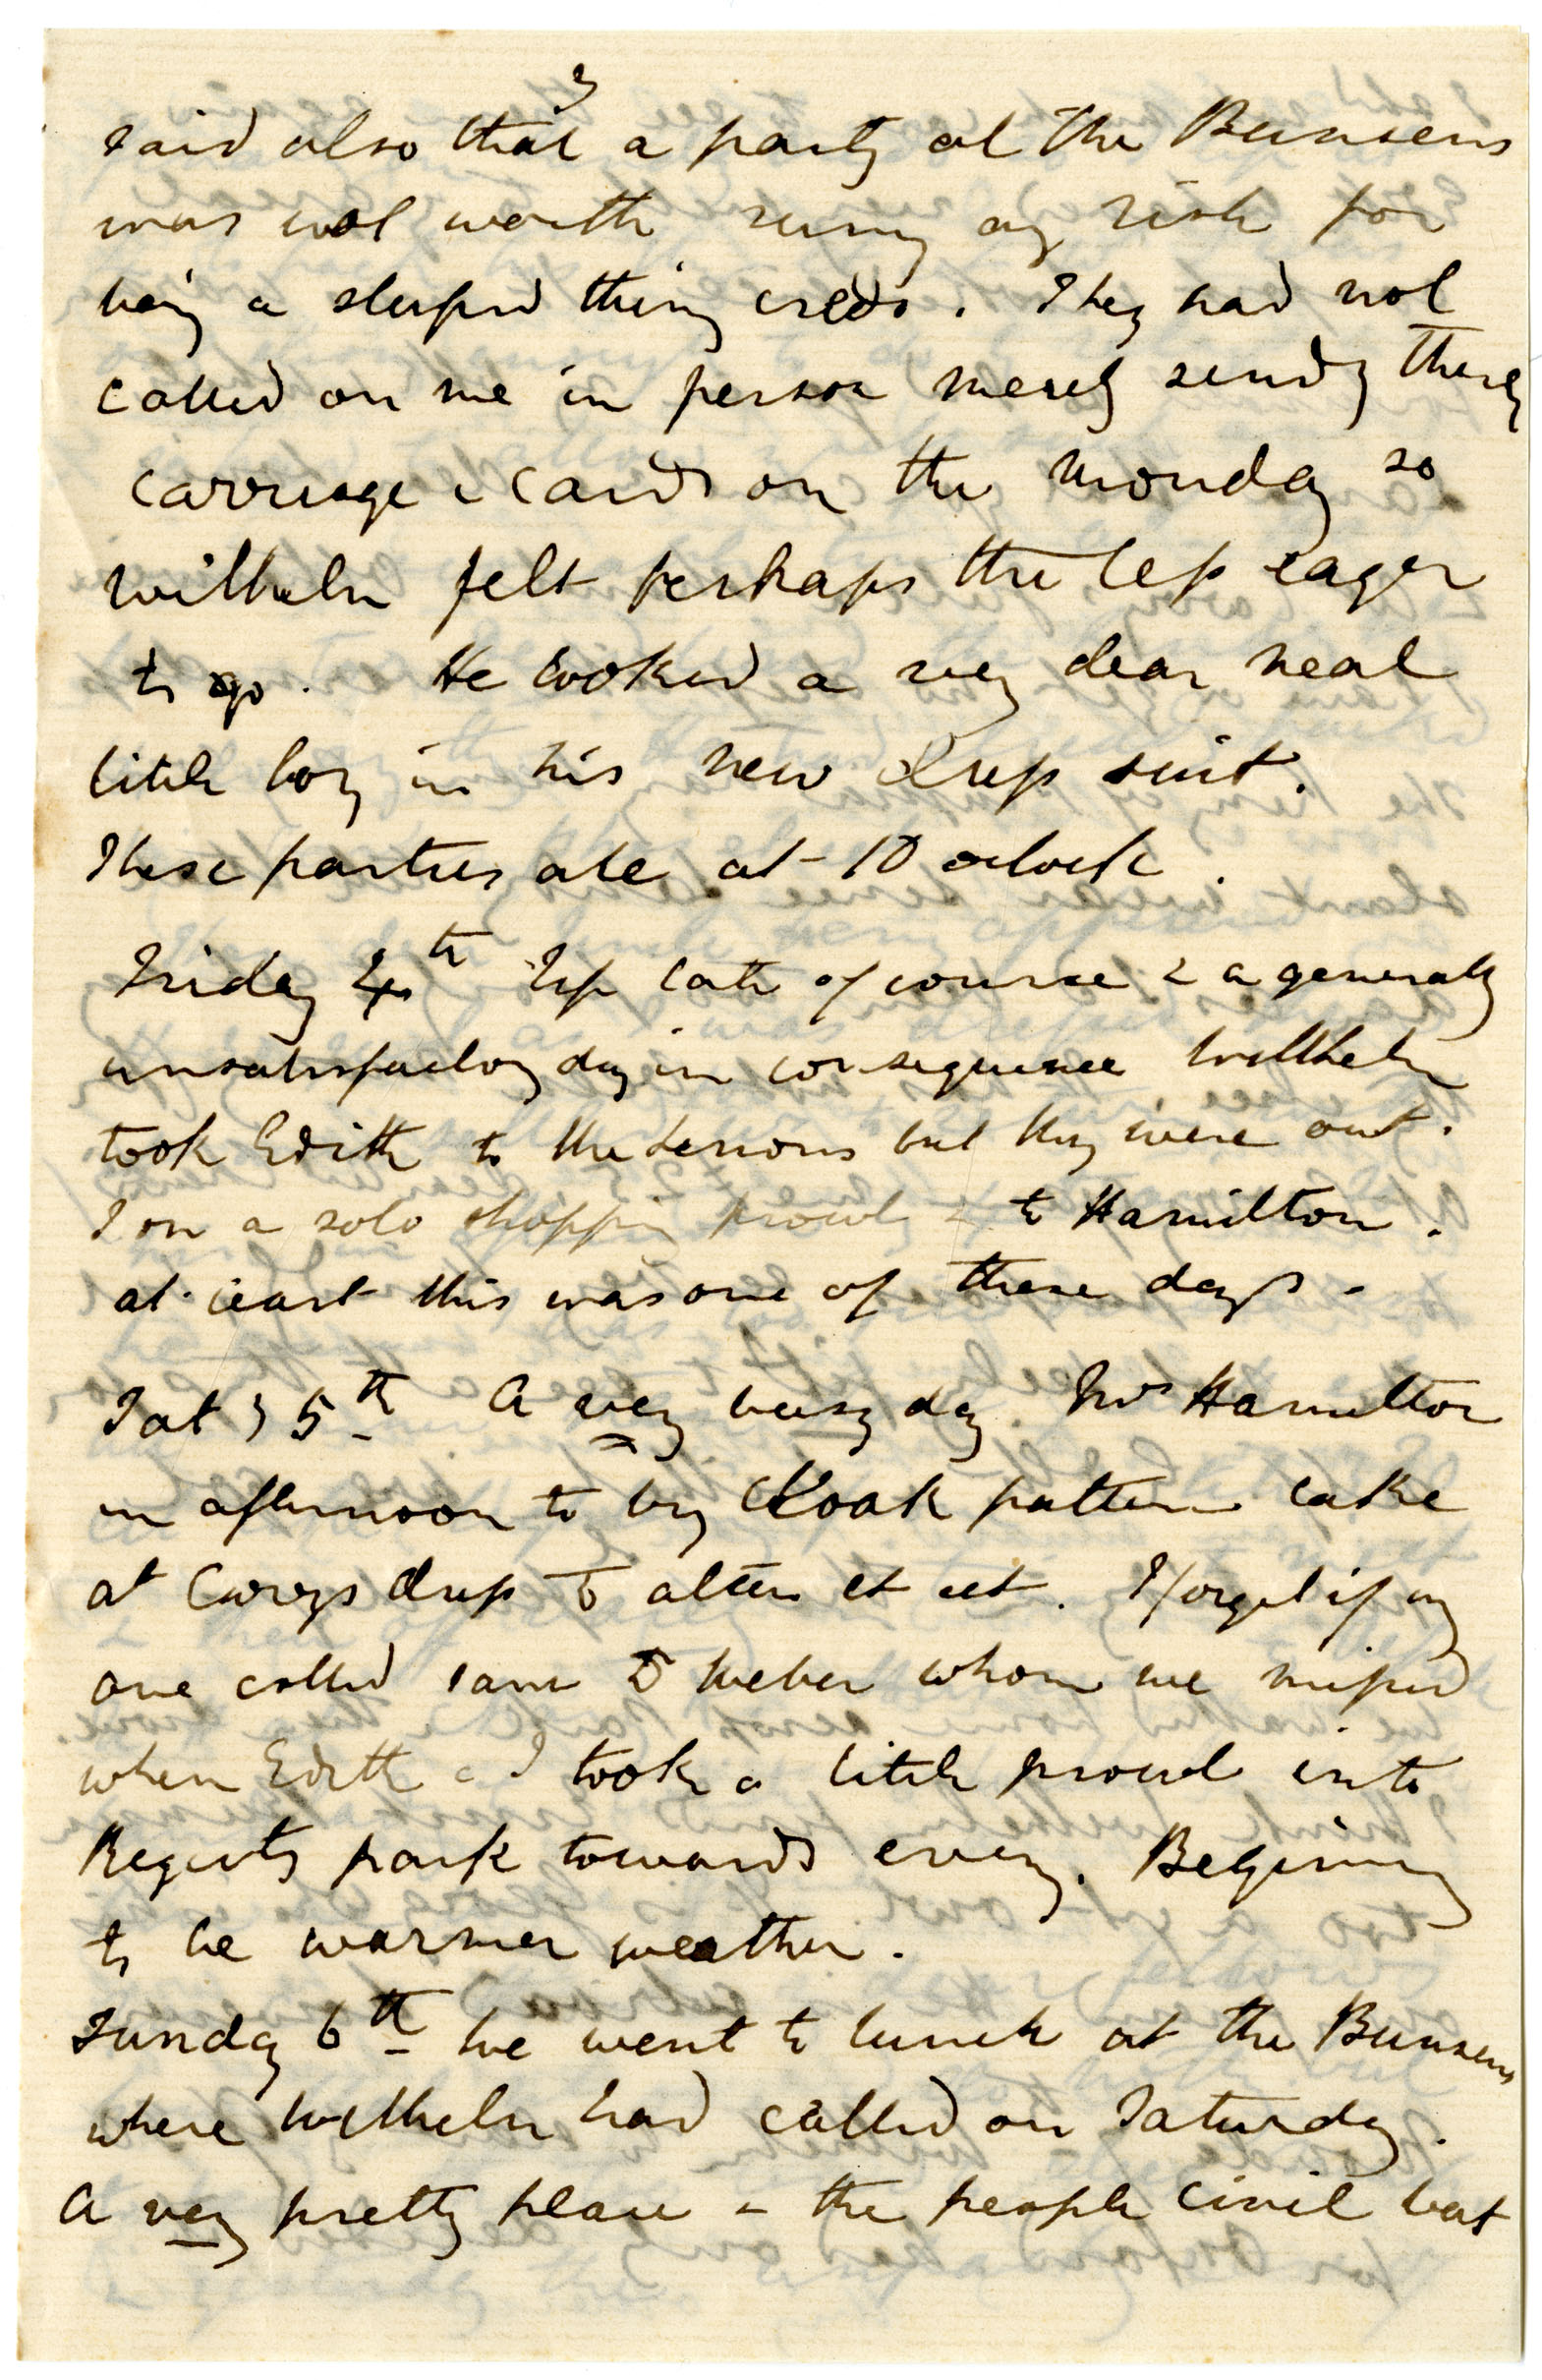 3
said also that a party at the Bunsens
was not worth runing any risk for
being a stupid thing . They had not
called on me in person merely sending their
carriage & cards on the Monday so
Wilhelm felt perhaps the less eager
to go . He looked a very dear neat
little boy in his new dress suit .
These parties are at 10 oclock .
Friday 4th Up late of course & a generally
unsatisfactory day in consequence Wilhelm
took Edith to the but they were out .
I on a solo shopping prowl & to Hamilton .
at least this was one of these days .
Sat 5th A very busy day . Mrs Hamilton
in afternoon to buy Cloak pattern cake
at dress to alter et cet . I forget if any
one called save Dr Weber whom we missed
when Edith & I took a little prowl into
Regents park towards eveng . Begining
to be warmer weather .
Sunday 6th We went to lunch at the Bunsens
where Wilhelm had called on Saturday .
A very pretty place & the people civil but